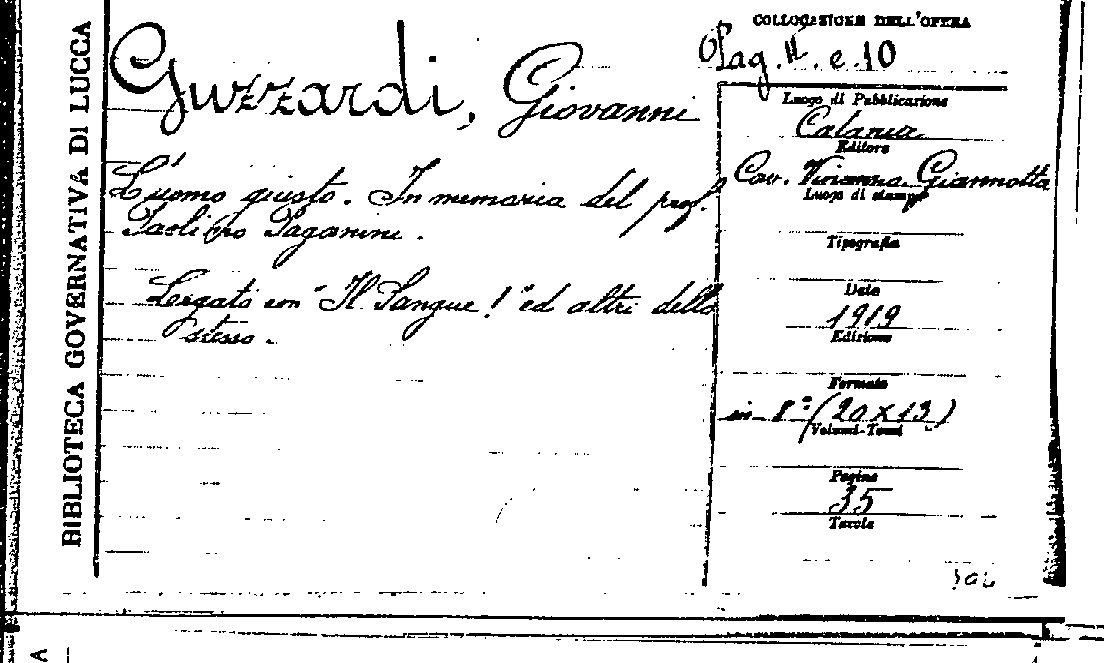 BIBLIOTECA GOVERNATIVA DI LUCCA
COLLOCAZIONE DELL'OPERA
Pag. II. e. 10
Guzzardi, Giovanni
L'uomo giusto. In memoria del prof.
Paganini.
Legato con "Il Sangue!" ed altri dello
stesso.
Luogo di Pubblicazione
Catania
Editore
Cav. Giannotta
Luogo di stampa
Tipografia
Data
1919
Edizione
Formato
in-8° (20x13)
Volumi-Tomi
Pagine
35
Tavole
A